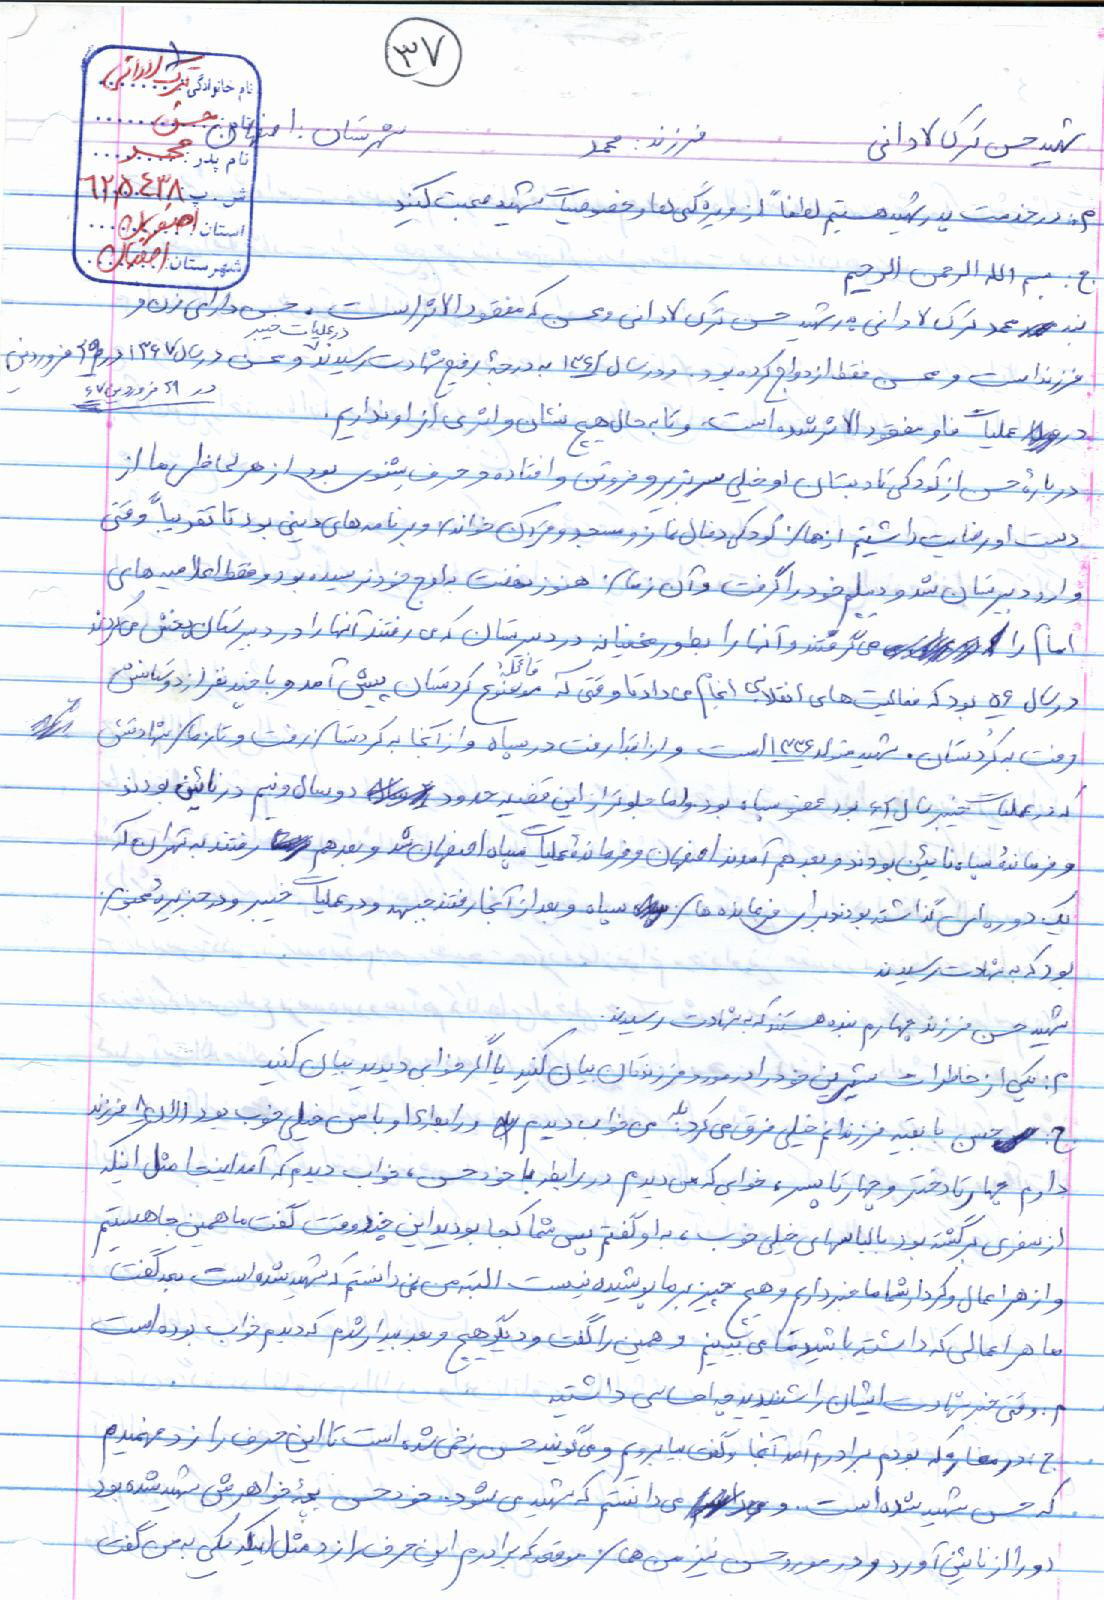 ۳۷
نام خانوادگی: ترک لادانی
نام: حسن
نام پدر: محمد
ش. پ: ۶۲۵۰۴۳۸
استان: اصفهان
شهرستان: اصفهان
شهید حسن ترک لادانی فرزند: محمد شهرستان: اصفهان
م: در خدمت پدر شهید هستیم لطفاً از ویژگی‌ها و خصوصیات شهید صحبت کنید
ج: بسم الله الرحمن الرحیم
بنده محمد ترک لادانی پدر شهید حسن ترک لادانی و محسن که مفقودالاثر است. حسن دارای زن و
فرزند است و محسن فقط ازدواج کرده بود. و در سال ۱۳۶۲ در عملیات خیبر به درجهٔ رفیع شهادت رسیدند و محسن در سال ۱۳۶۷ در ۲۹ فروردین
در ۲۹ فروردین ۶۷
در عملیات فاو مفقودالاثر شده است. و تا به حال هیچ نشان و اثری از او نداریم.
درباره حسن از کودکی تا دبستان او خیلی سربزیر و فروتن و افتاده و حرف بشنوی بود از هر لحاظی ما از
دست او رضایت داشتیم از همان کودکی دنبال نماز و مسجد و قرآن خواندن و برنامه‌های دینی بود تا تقریباً وقتی
وارد دبیرستان شد و دیپلم خود را گرفت و آن زمان هنوز نهضت به اوج خود نرسیده بود و فقط اعلامیه‌های
امام را می‌گرفتند و آنها را بطور مخفیانه در دبیرستان که می‌رفتند آنها را در دبیرستان پخش می‌کردند
در سال ۵۶ بود که فعالیت‌های انقلابی انجام می‌داد تا وقتی که قائله کردستان پیش آمد و با چند نفر از دوستانش
رفت به کردستان. شهید متولد ۱۳۳۶ است و از ابتدا رفت در سپاه و از آنجا به کردستان رفت و تا زمان شهادتش
که در عملیات خیبر سال ۶۲ بود عضو سپاه بود و اما جلوتر از این قضیه حدود دو سال و نیم در نائین بودند
و فرمانده سپاه نائین بودند و بعد هم آمدند اصفهان و فرمانده عملیات سپاه اصفهان شد و بعد هم رفتند به تهران که
یک دوره‌ای گذاشته بودند برای فرمانده‌های سپاه و بعد از آنجا رفتند جبهه و در عملیات خیبر و در جزیره مجنون
بود که به شهادت رسیدند
شهید حسن فرزند چهارم بنده هستند که به شهادت رسیدند.
م: یکی از خاطرات شیرین خود را در مورد فرزندتان بیان کنید یا اگر خوابی دیدید بیان کنید
ج: حسن با بقیه فرزندانم خیلی فرق می‌کرد، می خواب دیدم و رابطه‌ی او با من خیلی خوب بود الان ۸ فرزند
دارم چهار تا دختر و چهار تا پسر، خوابی که می‌دیدم در رابطه با خود حسن، خواب دیدم که آمد اینجا مثل اینکه
از سفری برگشته بود با لباسهای خیلی خوب، به او گفتم پس شما کجا بودید این چند وقت گفت ما همین جا هستیم
و از هر اعمال و کردار شما ما خبر داریم و هیچ چیز بر ما پوشیده نیست البته من نمی‌دانستم که شهید شده است بعد گفت
ما هر اعمالی که داشته باشید شما می‌بینیم و همین را گفت و دیگر هیچ و بعد بیدار شدم که دیدم خواب بوده است
م: وقتی خبر شهادت ایشان را شنیدید چه احساسی داشتید
ج: در مغازه که بودم برادرم آمد آنجا و گفت بیا برویم و می‌گویند حسن زخمی شده است تا این حرف را زد فهمیدم
که حسن شهید شده است. و می‌دانستم که شهید می‌شود. خود حسن بچهٔ خواهرش شهید شده بود
او را از نائین آورد و در مورد حسن نیز من همان موقعی که برادرم این حرف را زد مثل اینکه یکی به من گفت